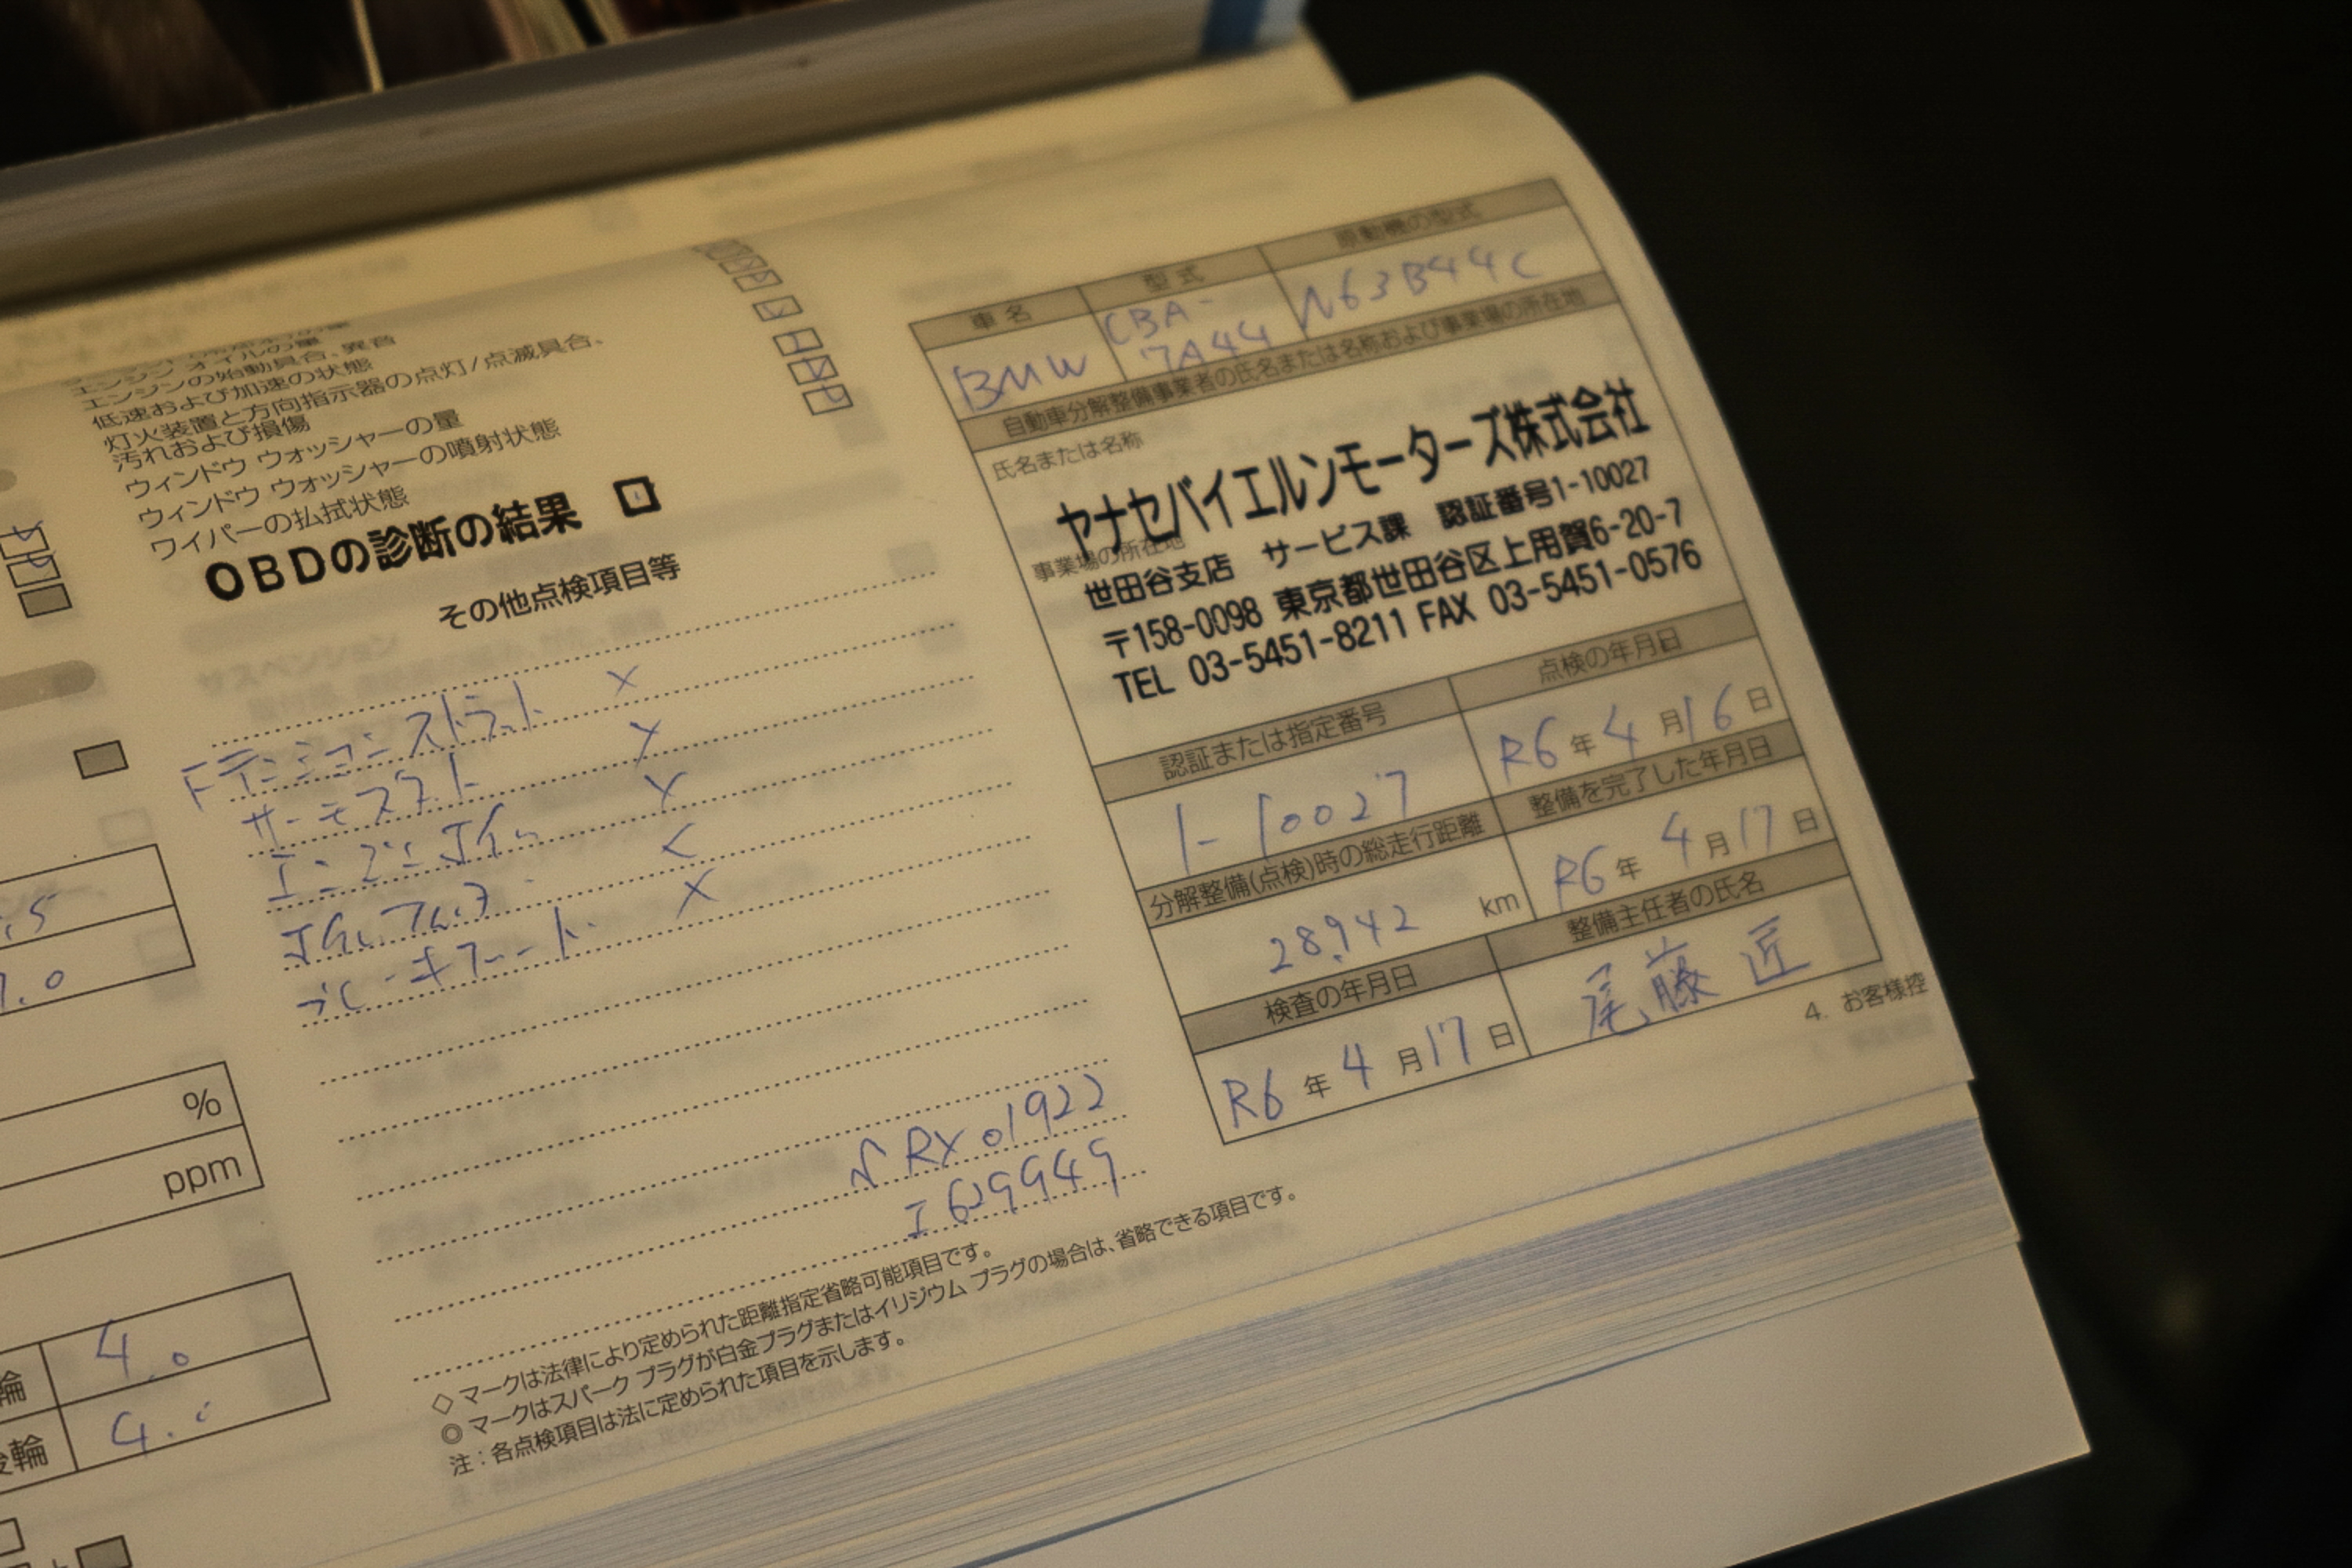 エンジン オイルの量
エンジンの始動具合、異音
低速および加速の状態
灯火装置と方向指示器の点灯/点滅具合、
汚れおよび損傷
ウィンドウ ウォッシャーの量
ウィンドウ ウォッシャーの噴射状態
ワイパーの払拭状態
OBDの診断の結果
その他点検項目等
Fテンションストラット ×
サーモスタット ×
エンジンオイル ×
×
ブレーキフルード ×
RX01922
I629949
%
ppm
輪 4.0
後輪
◇ マークは法律により定められた距離指定省略可能項目です。
◎ マークはスパーク プラグが白金プラグまたはイリジウム プラグの場合は、省略できる項目です。
注:各点検項目は法に定められた項目を示します。
車名 型式 原動機の型式
BMW CBA-7A44 N63B44C
自動車分解整備事業者の氏名または名称および事業場の所在地
氏名または名称
ヤナセバイエルンモーターズ株式会社
事業場の所在地
世田谷支店 サービス課 認証番号1-10027
〒158-0098 東京都世田谷区上用賀6-20-7
TEL 03-5451-8211 FAX 03-5451-0576
認証または指定番号 点検の年月日
1-10027 R6年4月16日
分解整備(点検)時の総走行距離 整備を完了した年月日
28,942 km R6年4月17日
検査の年月日 整備主任者の氏名
R6年4月17日 尾藤 匠
4. お客様控